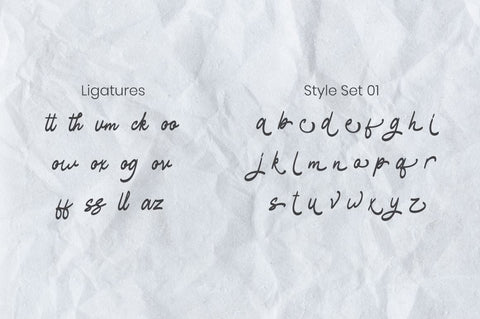 Ligatures
tt th um ck oo
ow ox og ov
ff ss ll az
Style Set 01
a b c d e f g h i
j k l m n o p q r
s t u v w x y z